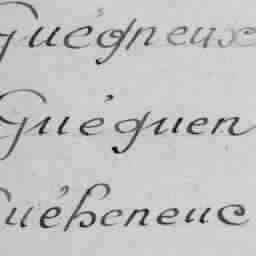 Guégneux
Guéguen
Guéheneuc